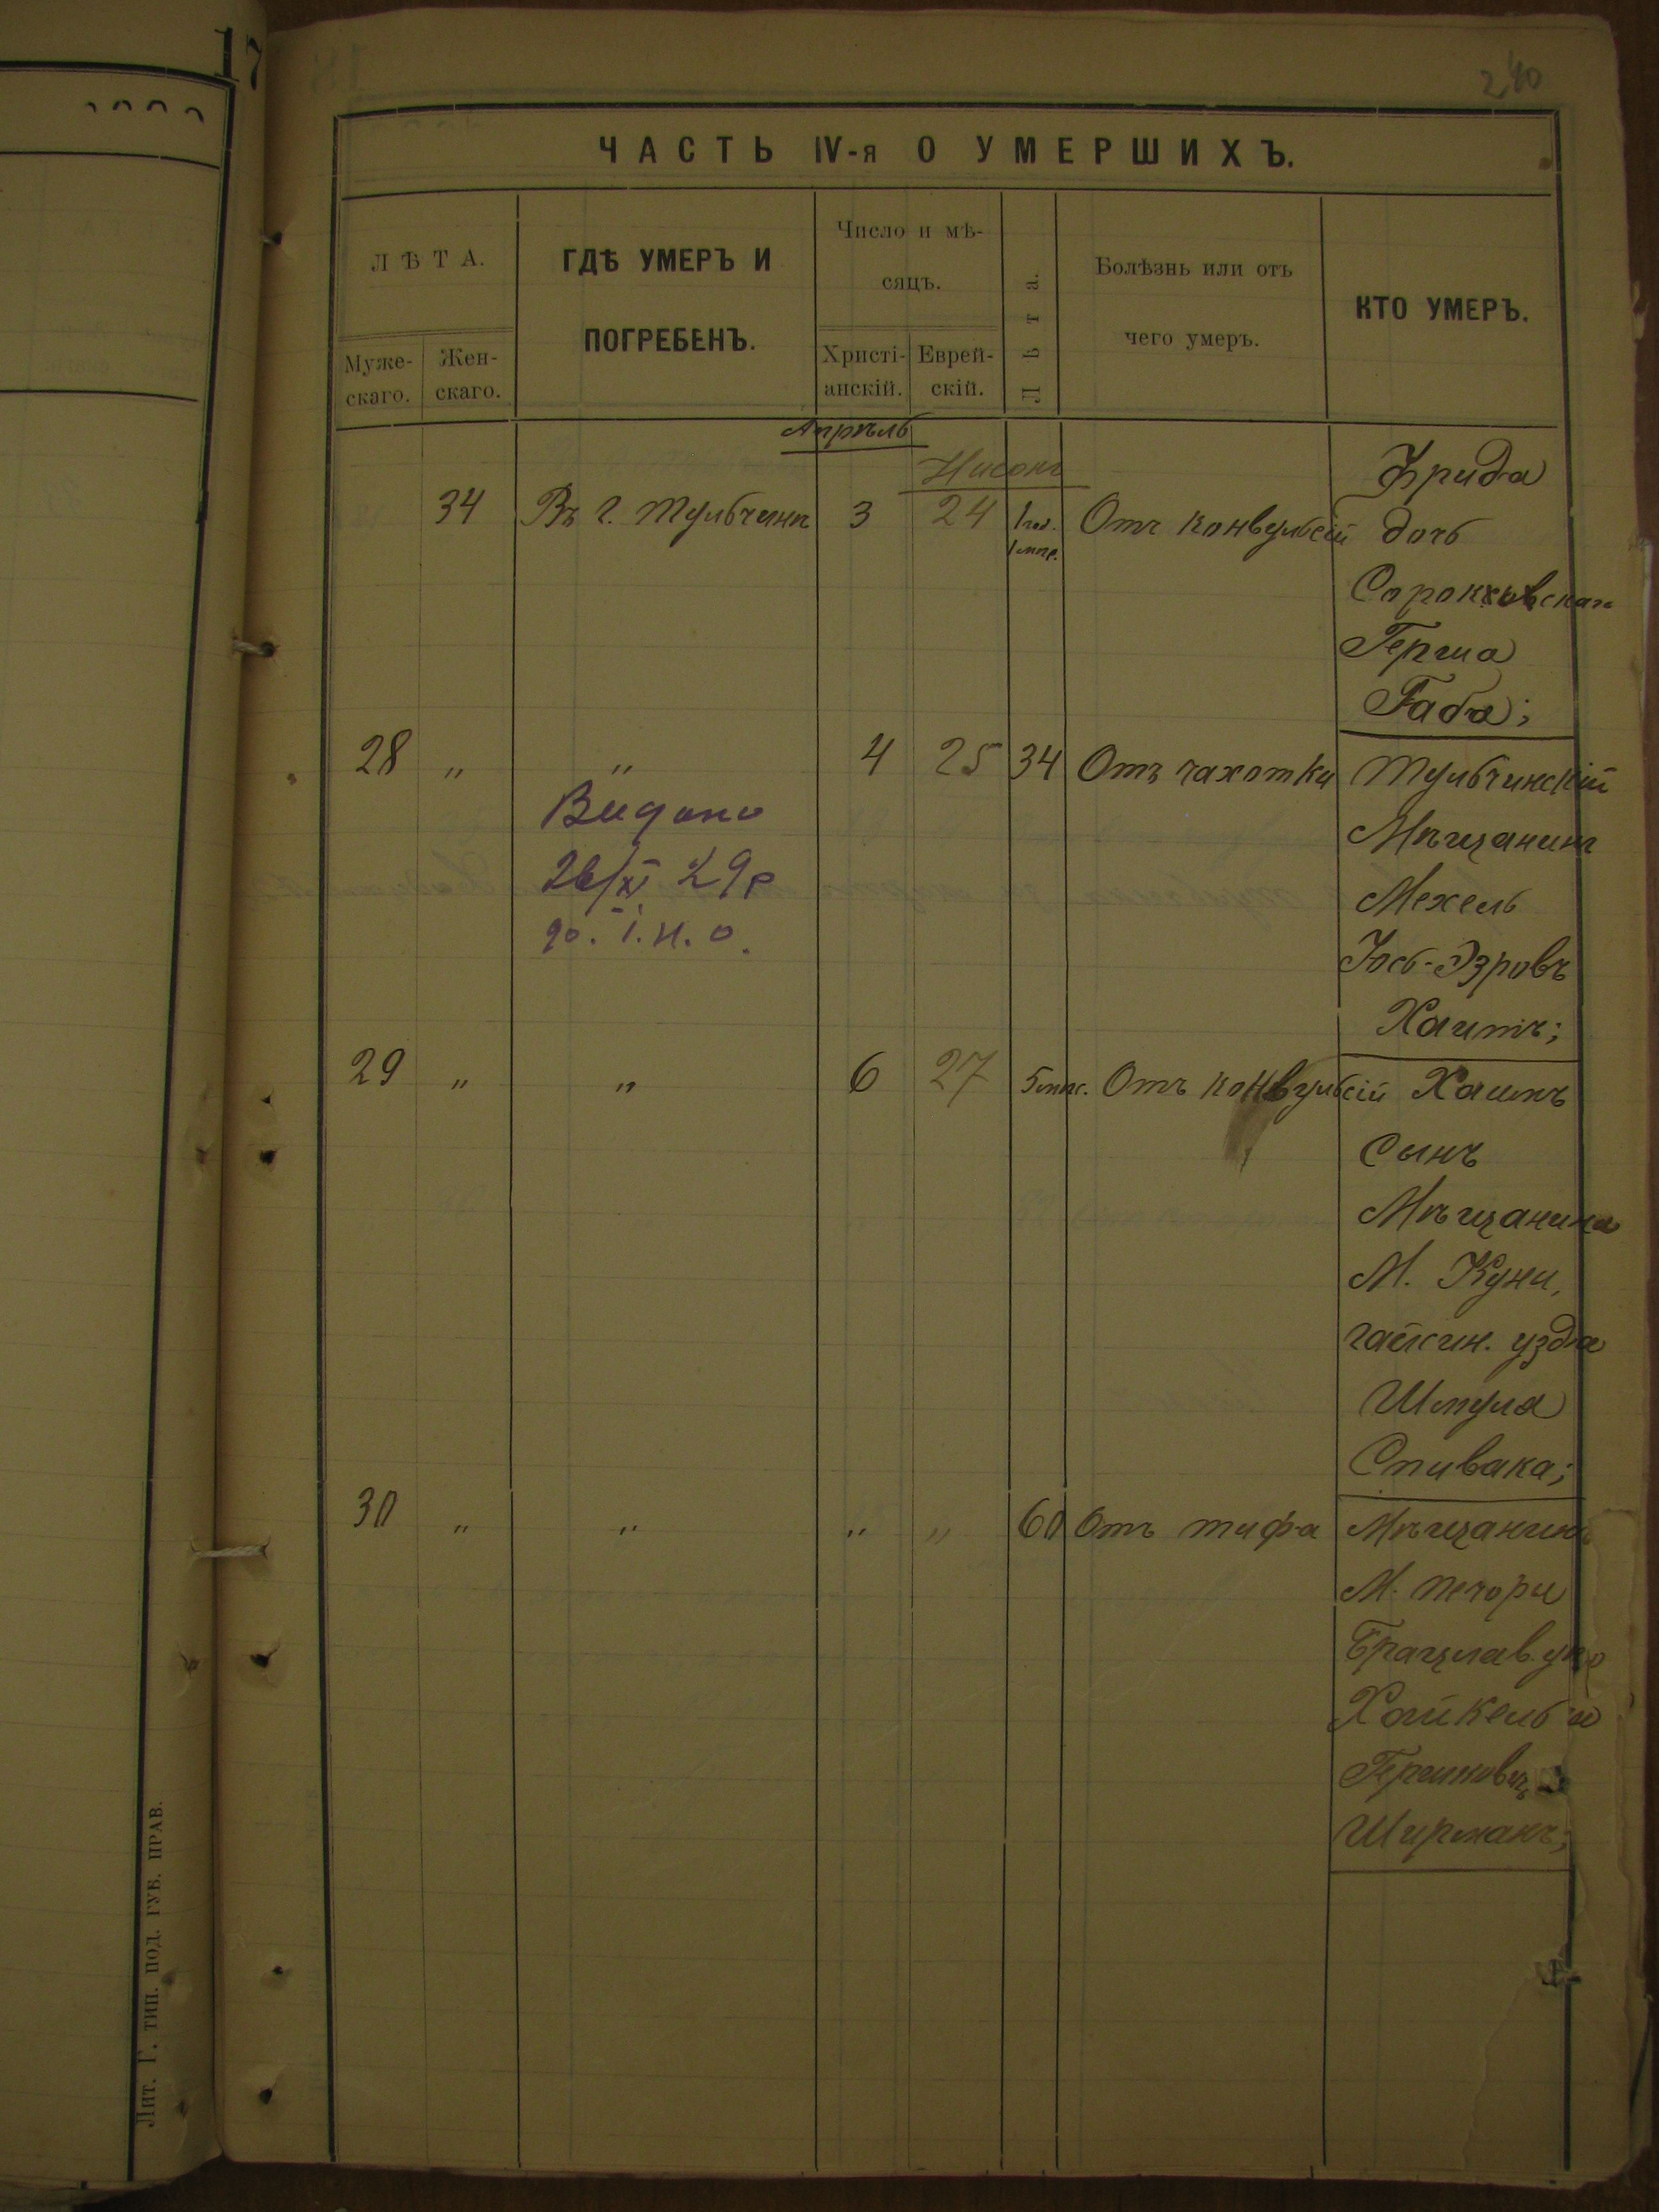 17
240
ЧАСТЬ IV-я О УМЕРШИХЪ.
ЛѢТА.
Муже-
скаго.
Жен-
скаго.
ГДѢ УМЕРЪ И
ПОГРЕБЕНЪ.
Число и мѣ-
сяцъ.
Христі-
анскій.
Еврей-
скій.
Лѣта.
Болѣзнь или отъ
чего умеръ.
КТО УМЕРЪ.
Апрѣль
Нисонъ
34 Въ г. Тульчинѣ 3 24 1 год. 1 мѣс. Отъ конвульсій
Фрида
дочь
Герша
Габа;
28 " " 4 25 34 Отъ чахотки
Тульчинскій
Мѣщанинъ
Мехель
Юсь-Эзровъ
Хаитъ;
Видано
26/XI 29р
І.Н.О.
29 " " 6 27 5 мѣс. Отъ конвульсій
Хаимъ
сынъ
Мѣщанина
М. Куни,
гайсин. уѣзда
Шмуля
Спивака;
30 " " " " 60 Отъ тифа
Мѣщанинъ
М. Печоры
Брацлав.
Хайкель
Гершковъ
Ширманъ;
Лит. Г. тип. под. губ. прав.